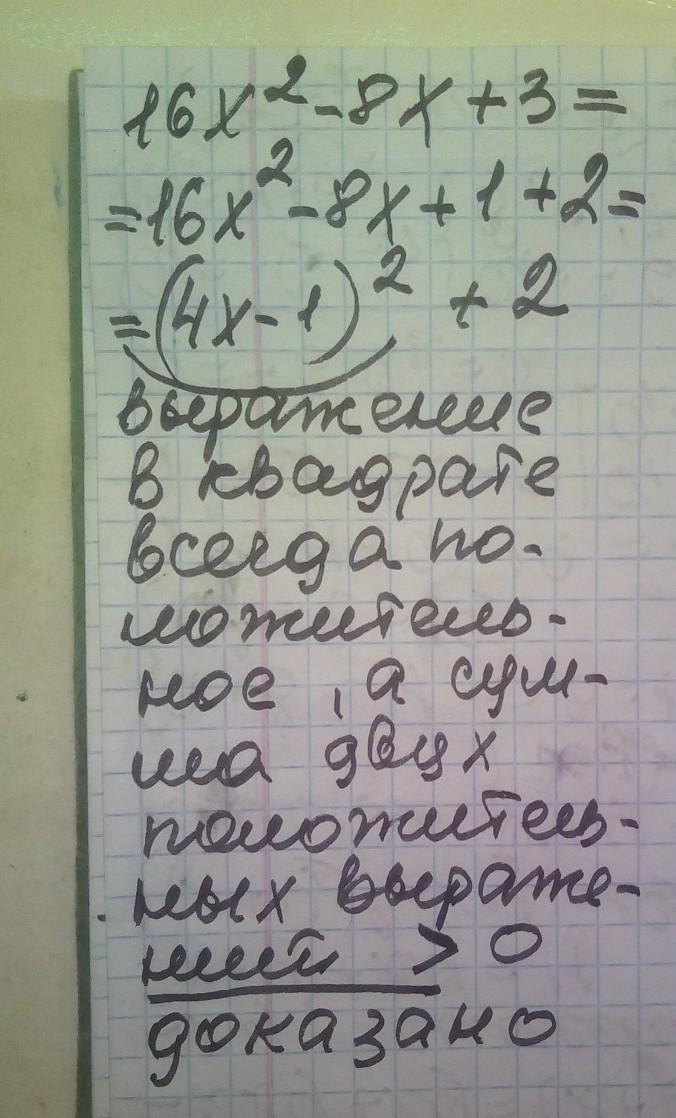 16x² - 8x + 3 =
= 16x² - 8x + 1 + 2 =
= (4x - 1)² + 2
выражение
в квадрате
всегда по-
ложитель-
ное, а сум-
ма двух
положитель-
ных выраже-
ний > 0
доказано